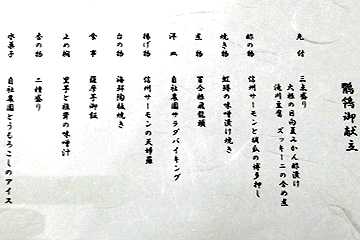 御献立
先付 三点盛り
大根の日向夏みかん酢漬け
滝川豆腐 ズッキーニの含め煮
酢の物 信州サーモンと胡瓜の博多押し
煮物 百合根飛龍頭
焼き物 虹鱒の味噌漬け焼き
洋皿 自社農園サラダバイキング
揚げ物 信州サーモンの天婦羅
台の物 海鮮陶板焼き
食事 薩摩芋御飯
止め椀 里芋と椎茸の味噌汁
香の物 二種盛り
水菓子 自社農園とうもろこしのアイス